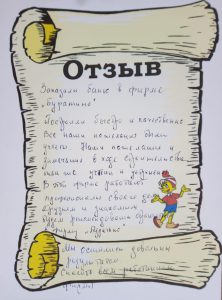 Отзыв
Заказали баню в фирме
"Буратино"
Построили быстро и качественно
Все наши пожелания были
учтены. Наши пожелания и
замечания в ходе строительства
были учтены и
В этой фирме работают
профессионалы своего дела
Будем рекомендовать
фирму
Мы остались довольны
результатом.
Спасибо всем работникам
фирмы!